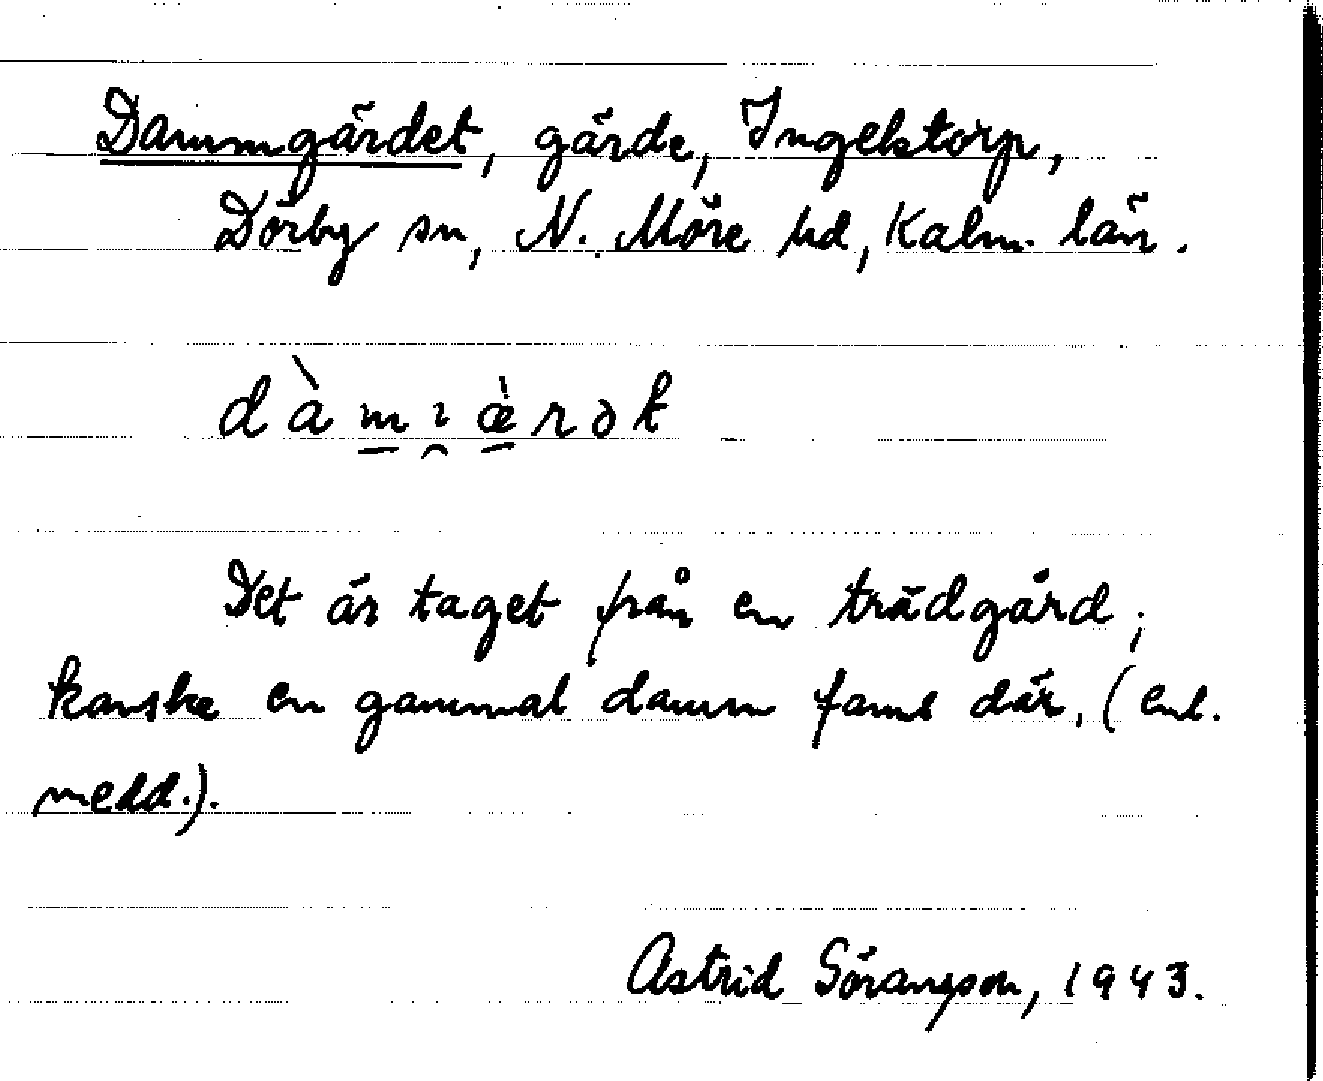 Dammgärdet, gärde, Ingelstorp,
Dörby sn, N. Möre hd, Kalm. län.
dàmɪæ̀rət
Det är taget från en trädgård;
kanske en gammal damm fanns där, (enl.
medd.).
Astrid Söransson, 1943.